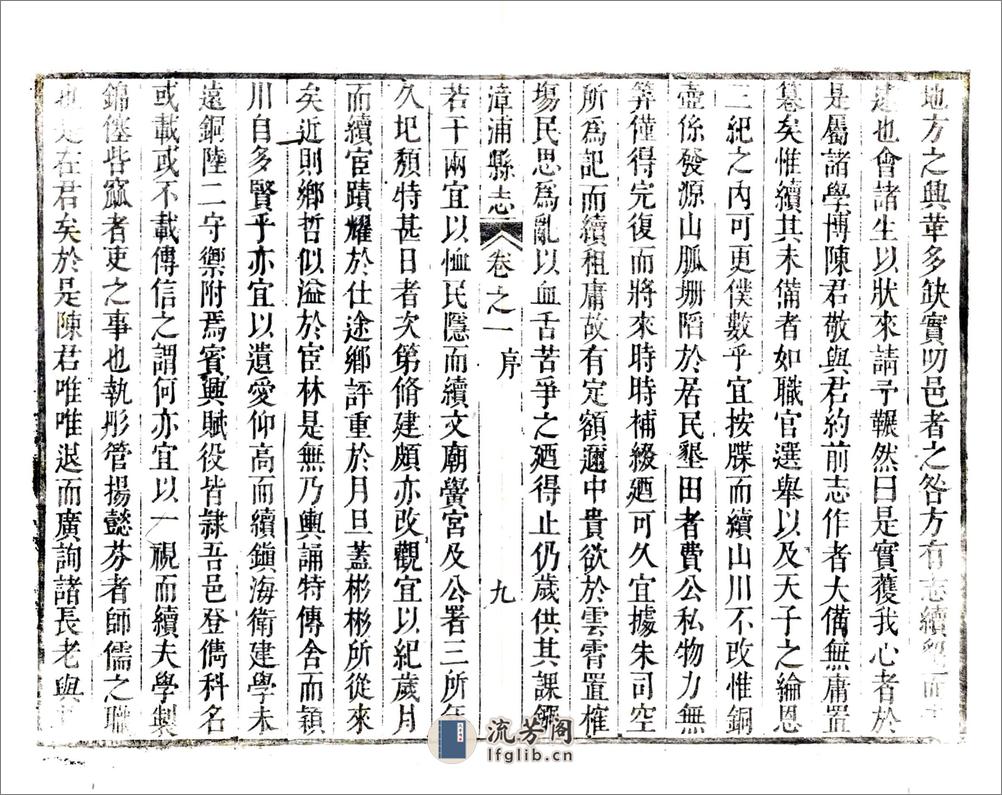 地方之興革多缺實叨邑者之咎方有志續
遠也會諸生以狀來請予囅然曰是實獲我心者於
是屬諸學博陳君敬與君約前志作者大備無庸置
喙矣惟續其未備者如職官選舉以及天子之綸恩
三紀之內可更僕數乎宜按牒而續山川不改惟銅
壺係發源山脈坍陷於居民墾田者費公私物力無
筭僅得完復而將來時時補綴廼可久宜據朱司空
所為記而續租庸故有定額邇中貴欲於雲霄置榷
塲民思為亂以血舌苦爭之廼得止仍歲供其課鏹
漳浦縣志 卷之一 序 九
若干兩宜以恤民隱而續文廟黌宮及公署三所年
久圯頹特甚日者次第脩建頗亦改觀宜以紀歲月
而續宦蹟耀於仕途鄉評重於月旦蓋彬彬所從來
矣近則鄉哲似溢於宦林是無乃輿誦特傳舍而潁
川自多賢乎亦宜以遺愛仰高而續鎮海衛建學未
遠銅陸二守禦附焉賓興賦役皆隸吾邑登儁科名
或載或不載傳信之謂何亦宜以一視而續夫學製
錦僅呰窳者吏之事也執彤管揚懿芬者師儒之職
也是在君矣於是陳君唯唯退而廣詢諸長老與
流芳阁
lfglib.cn